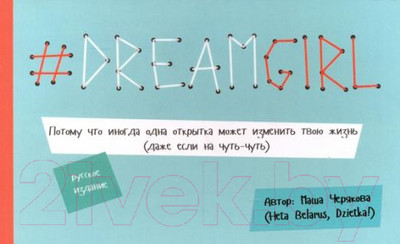 #DREAMGIRL
Потому что иногда одна открытка может изменить твою жизнь
(даже если на чуть-чуть)
русское
издание
Автор: Маша Черякова
(Heta Belarus, Dzietka!)
21vek.by